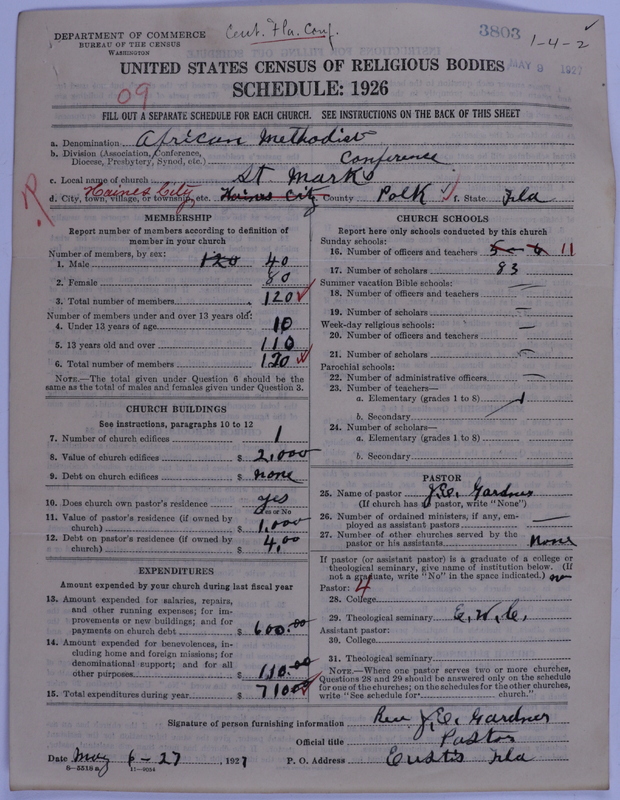 DEPARTMENT OF COMMERCE
BUREAU OF THE CENSUS
WASHINGTON
Cent. Fla. Conf.
3803
1-4-2
MAY 9 1927
UNITED STATES CENSUS OF RELIGIOUS BODIES
SCHEDULE: 1926
09
FILL OUT A SEPARATE SCHEDULE FOR EACH CHURCH. SEE INSTRUCTIONS ON THE BACK OF THIS SHEET
a. Denomination African Methodist
b. Division (Association, Conference, Diocese, Presbytery, Synod, etc.) Conference
c. Local name of church St Marks
d. City, town, village, or township, etc. Haines City Haines City County Polk f. State Fla
MEMBERSHIP
Report number of members according to definition of
member in your church
Number of members, by sex:
1. Male 120 40
2. Female 80
3. Total number of members 120
Number of members under and over 13 years old:
4. Under 13 years of age 10
5. 13 years old and over 110
6. Total number of members 120
NOTE.—The total given under Question 6 should be the
same as the total of males and females given under Question 3.
CHURCH BUILDINGS
See instructions, paragraphs 10 to 12
7. Number of church edifices 1
8. Value of church edifices $ 2,000
9. Debt on church edifices $ none
10. Does church own pastor's residence yes
Yes or No
11. Value of pastor's residence (if owned by
church) $ 1,000
12. Debt on pastor's residence (if owned by
church) $ 4,00
EXPENDITURES
Amount expended by your church during last fiscal year
13. Amount expended for salaries, repairs,
and other running expenses; for im-
provements or new buildings; and for
payments on church debt $ 600.00
14. Amount expended for benevolences, in-
cluding home and foreign missions; for
denominational support; and for all
other purposes $ 110.00
15. Total expenditures during year $ 71000
CHURCH SCHOOLS
Report here only schools conducted by this church
Sunday schools:
16. Number of officers and teachers 5 - 6 11
17. Number of scholars 83
Summer vacation Bible schools:
18. Number of officers and teachers
19. Number of scholars
Week-day religious schools:
20. Number of officers and teachers
21. Number of scholars
Parochial schools:
22. Number of administrative officers
23. Number of teachers—
a. Elementary (grades 1 to 8)
b. Secondary
24. Number of scholars—
a. Elementary (grades 1 to 8)
b. Secondary
PASTOR
25. Name of pastor J.E. Gardner
(If church has no pastor, write "None")
26. Number of ordained ministers, if any, em-
ployed as assistant pastors
27. Number of other churches served by the
pastor or his assistants None
If pastor (or assistant pastor) is a graduate of a college or
theological seminary, give name of institution below. (If
not a graduate, write "No" in the space indicated.) no
Pastor: 4
28. College
29. Theological seminary E.W.C.
Assistant pastor:
30. College
31. Theological seminary
NOTE.—Where one pastor serves two or more churches,
Questions 28 and 29 should be answered only on the schedule
for one of the churches; on the schedules for the other churches,
write "See schedule for church."
Signature of person furnishing information Rev. J.E. Gardner
Official title Pastor
Date May 6-27, 1927 P. O. Address Eustis Fla
8—5518 a 11—9054